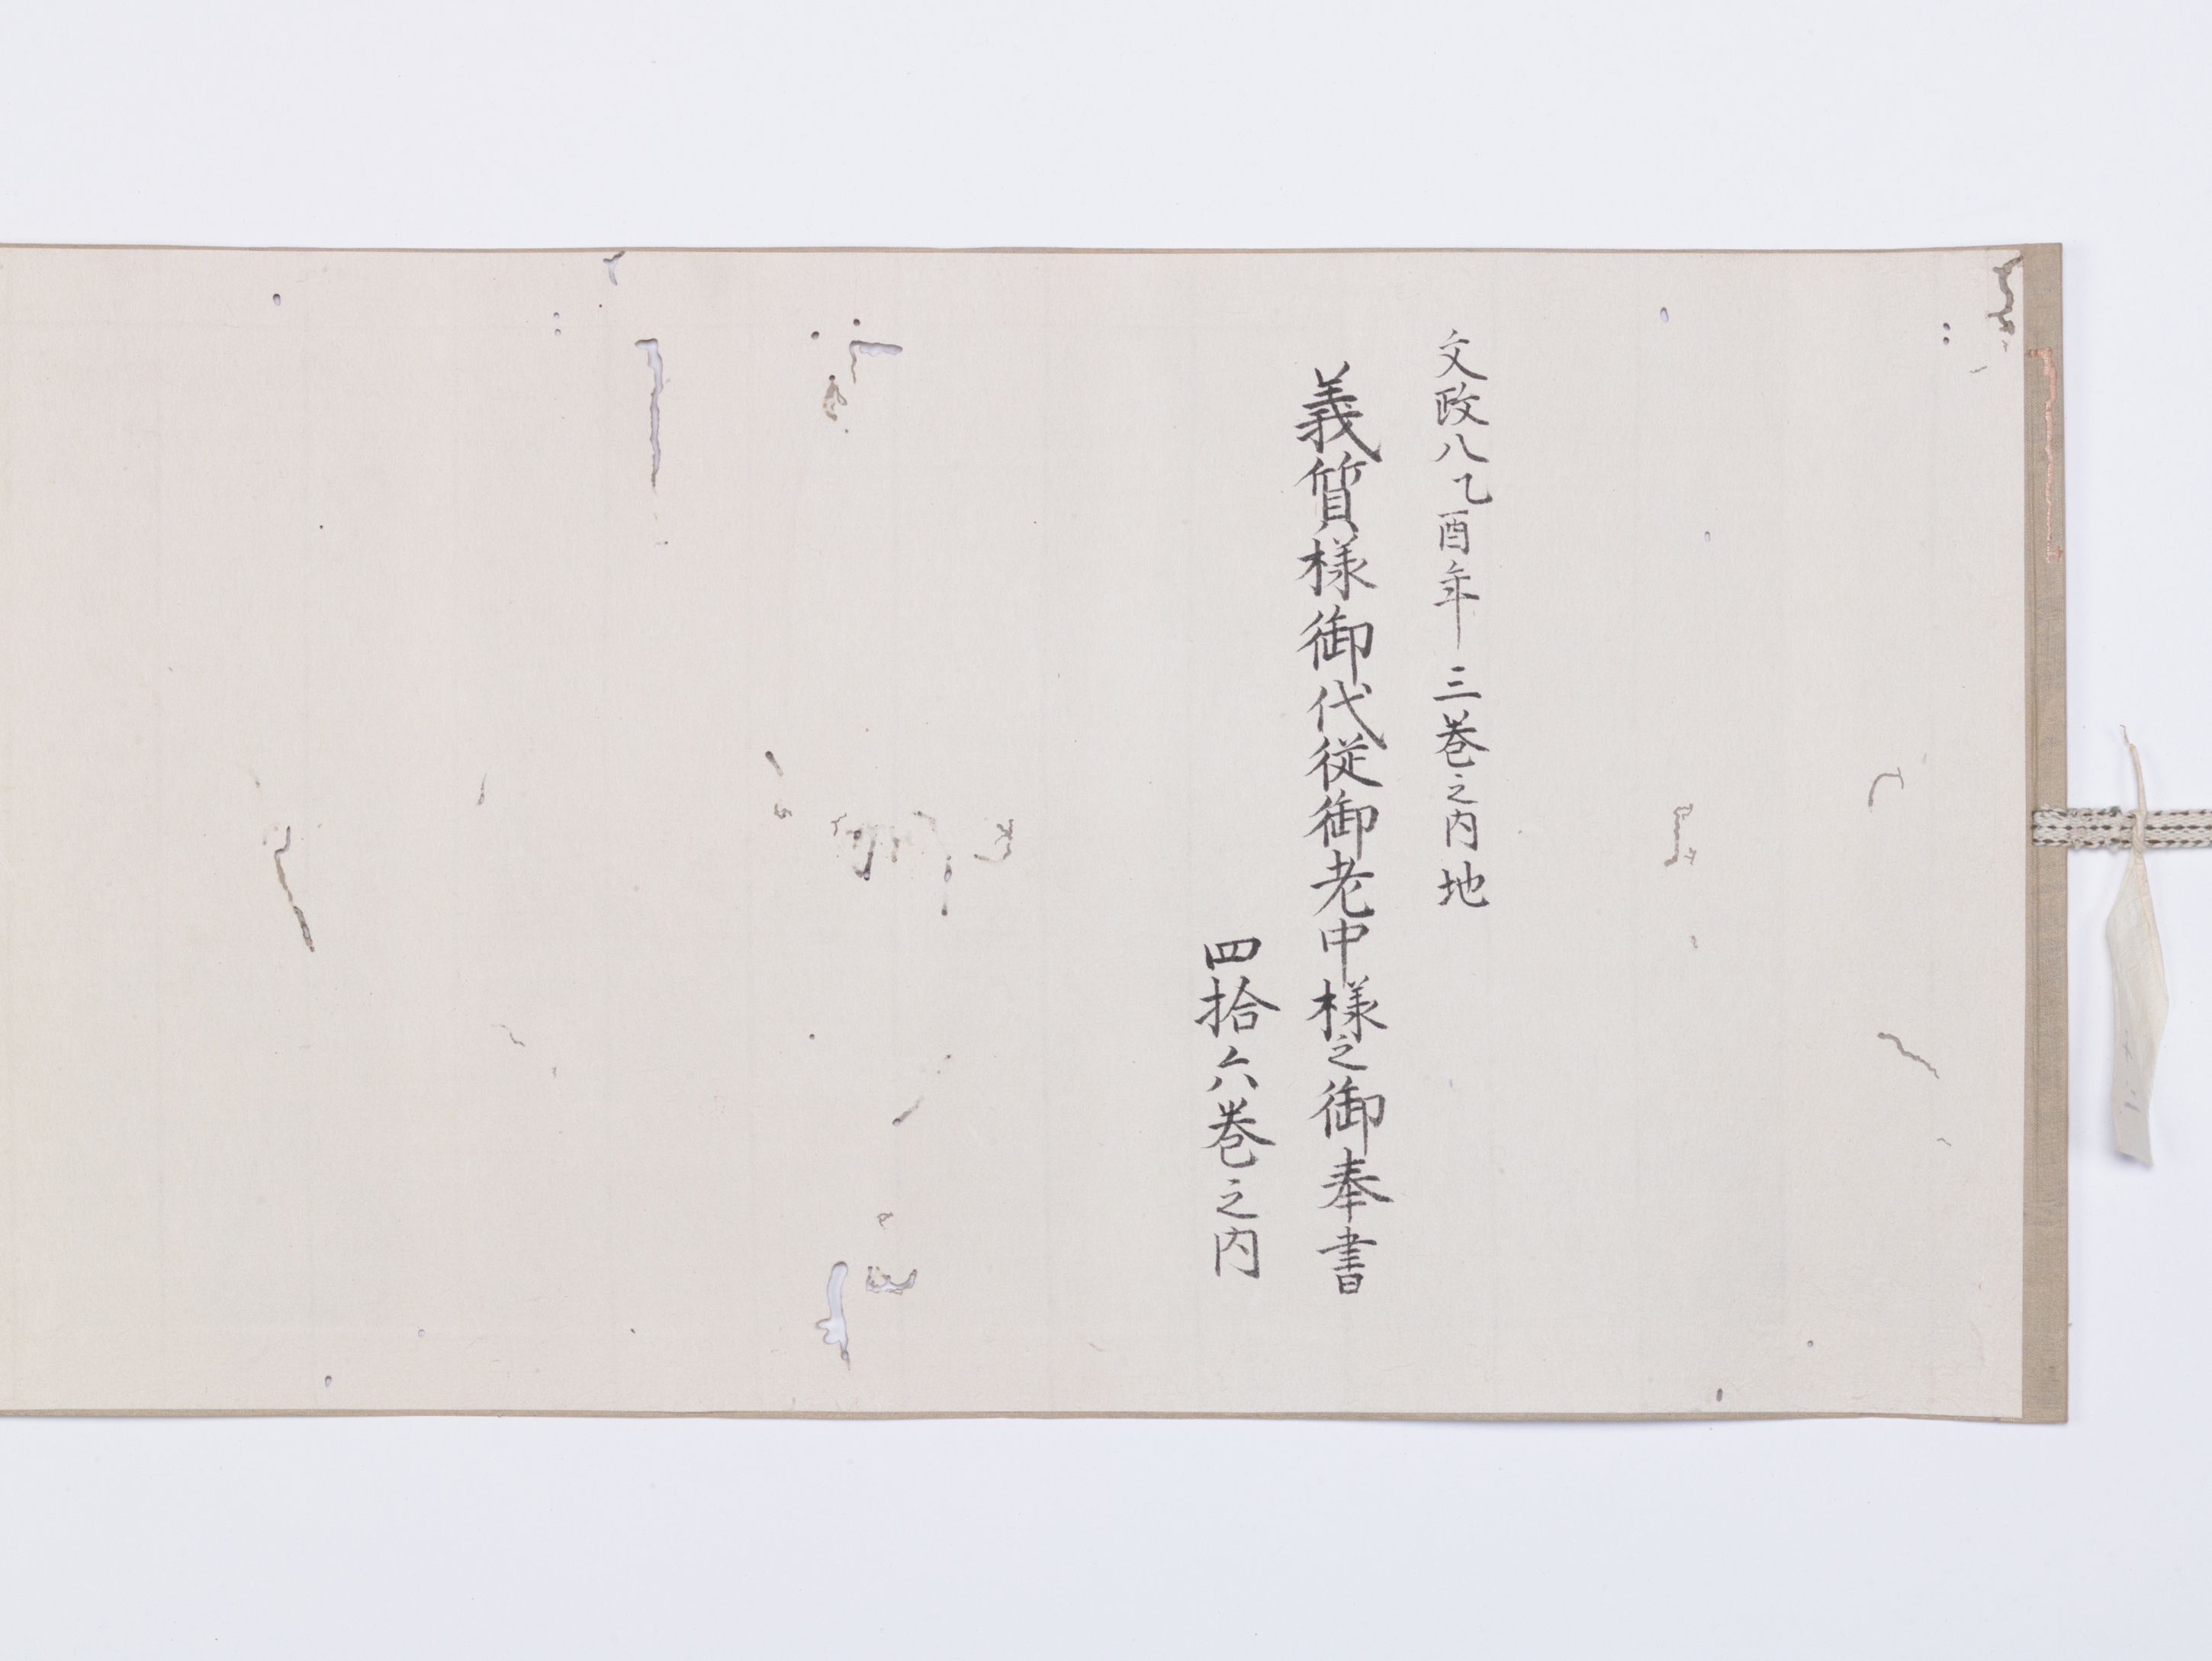 文政八乙酉年 三巻之内 地
義質様御代従御老中様之御奉書
四拾六巻之内